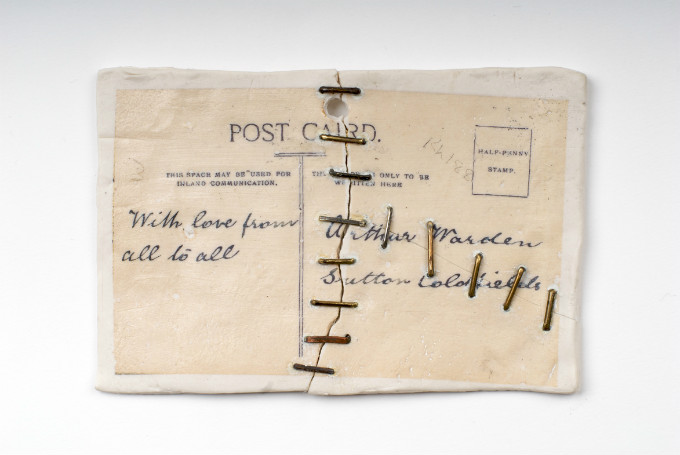 POST CARD.
HALF-PENNY
STAMP.
THIS SPACE MAY BE USED FOR
INLAND COMMUNICATION.
THE ONLY TO BE
WRITTEN HERE
With love from
all to all
Arthur Warden
Sutton Coldfields